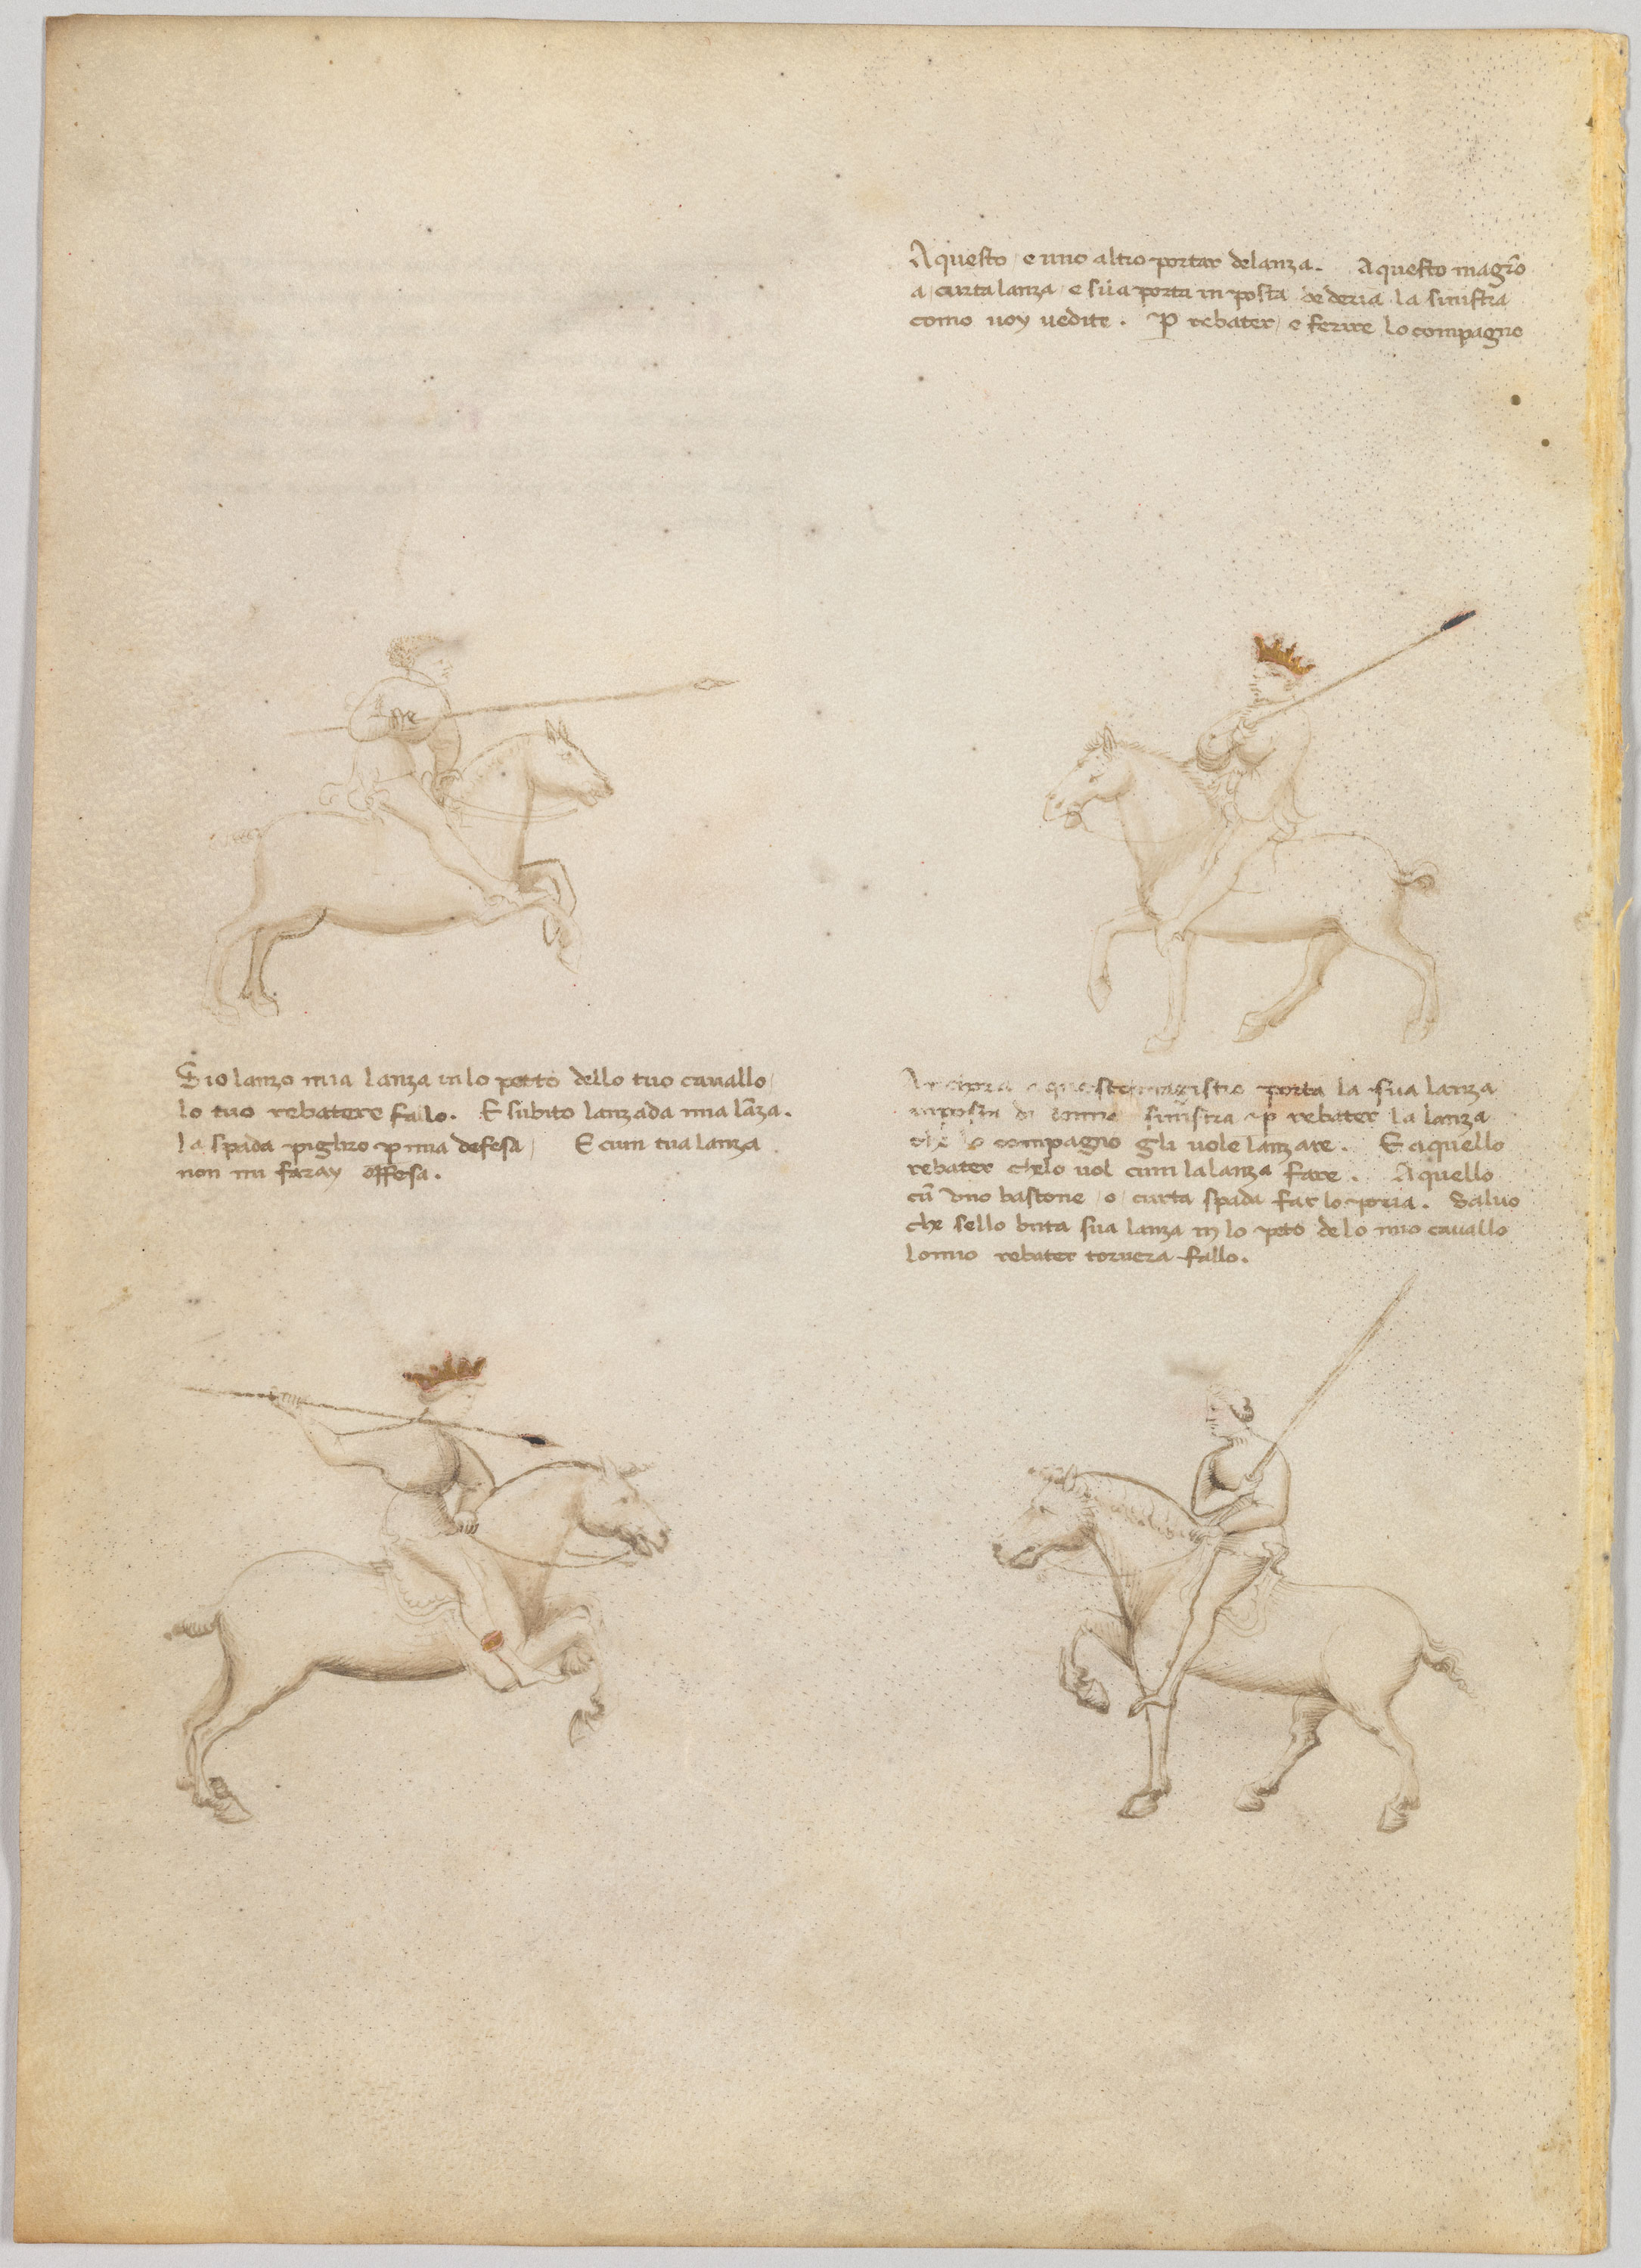 Aquesto / e uno altro portar de lanza. Aquesto magro
a / curta lanza / e sua porta in posta de deria la sinistra
como voy vedite. P rebater / e ferire lo compagno
Sio lanzo mia lanza in lo petto dello tuo cavallo /
lo tuo rebatere falo. E subito lanzada mia laza.
la spada piglro p mia defesa / E cum tua lanza
non mi faray offesa.
Anchora aquesto magistro porta la sua lanza
in posta di sinistra p rebater la lanza
che lo compagno gli vole lanzare. E aquello
rebater chelo vol cum la lanza fare. Aquello
cu uno bastone / o / curta spada far lo poria. Salvo
che sello buta sua lanza in lo peto de lo mio cavallo
lo mio rebater tornera fallo.